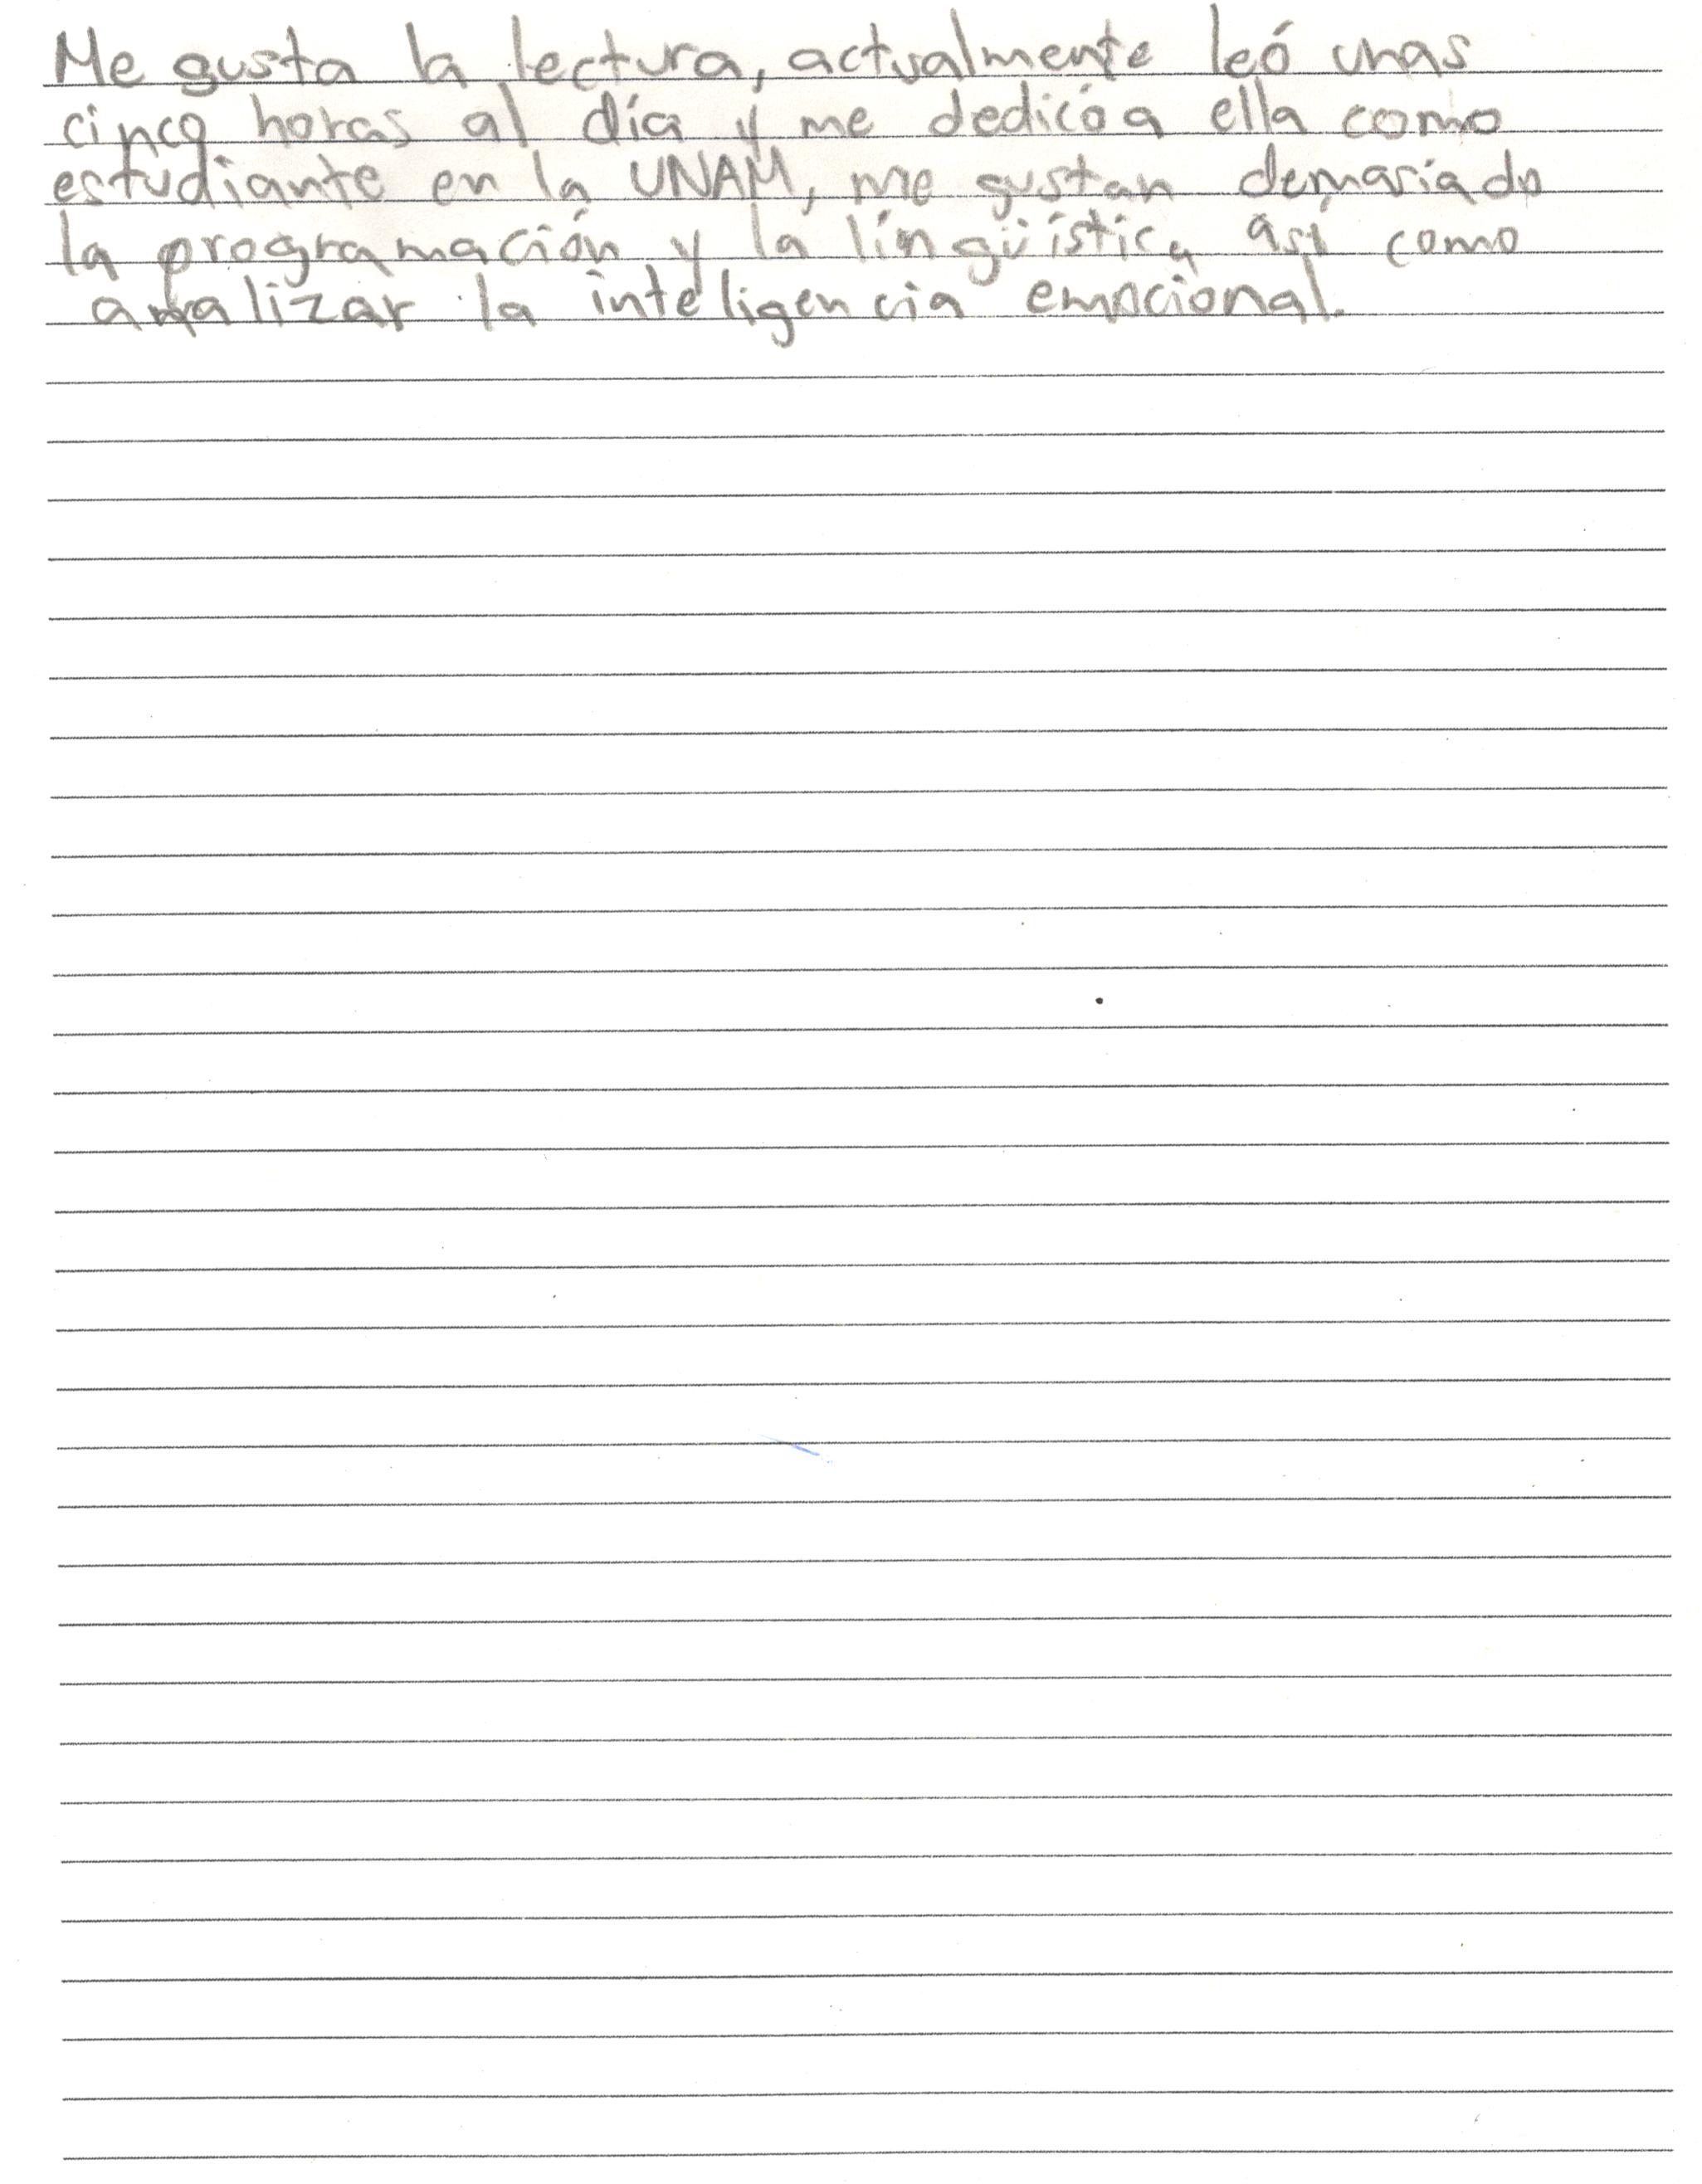 Me gusta la lectura, actualmente leó unas
cinco horas al día y me dedicó a ella como
estudiante en la UNAM, me gustan demasiado
la programación y la língüística así como
analizar la inteligencia emocional.